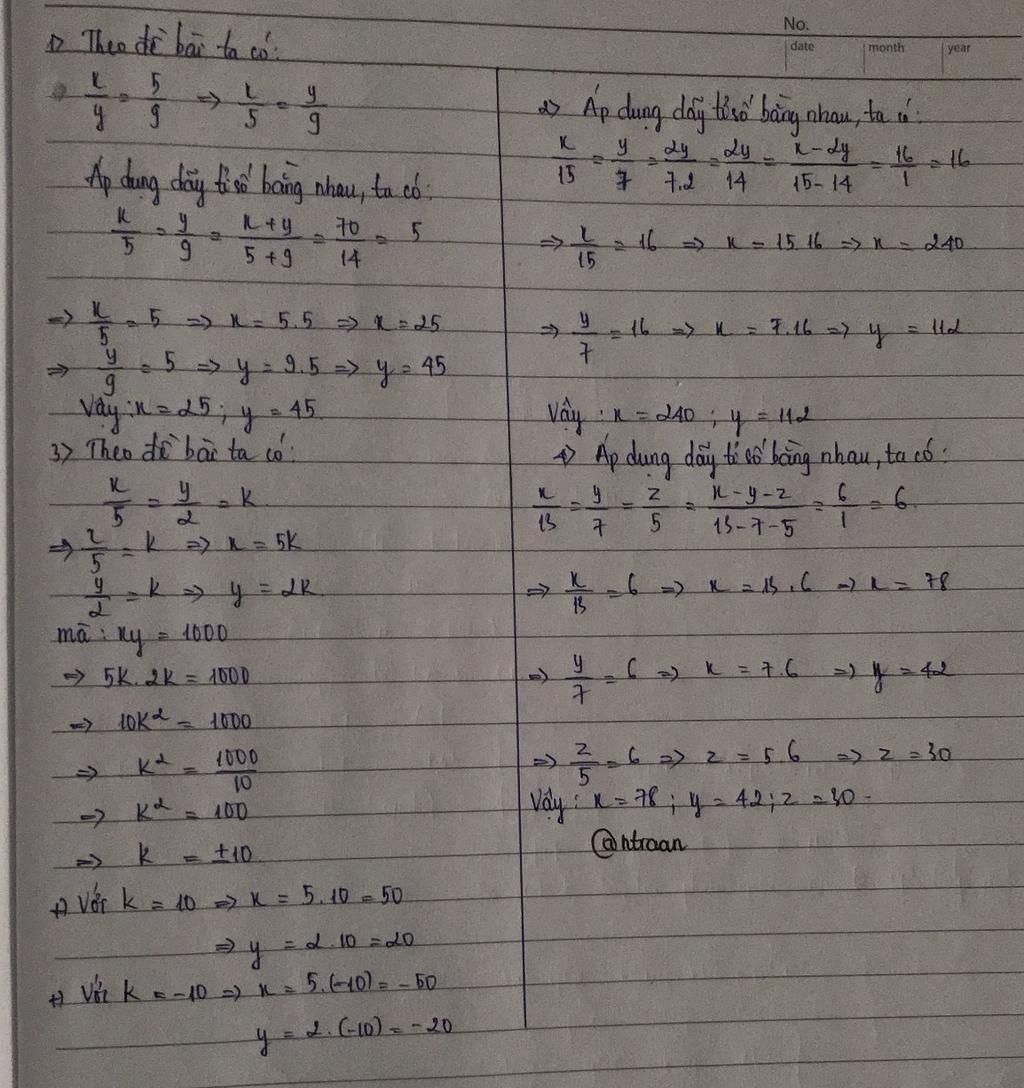 No.
date month year
1) Theo đề bài ta có:
x/y = 5/9 => x/5 = y/9
Áp dụng dãy tỉ số bằng nhau, ta có:
x/5 = y/9 = x+y/5+9 = 70/14 = 5
=> x/5 = 5 => x = 5.5 => x = 25
=> y/9 = 5 => y = 9.5 => y = 45
Vậy: x = 25; y = 45.
3) Theo đề bài ta có:
x/5 = y/2 = k
=> x/5 = k => x = 5k
y/2 = k => y = 2k
mà: xy = 1000
=> 5k.2k = 1000
=> 10k² = 1000
=> k² = 1000/10
=> k² = 100
=> k = ±10
+) Với k = 10 => x = 5.10 = 50
=> y = 2.10 = 20
+) Với k = -10 => x = 5.(-10) = -50
y = 2.(-10) = -20
2) Áp dụng dãy tỉ số bằng nhau, ta có:
x/15 = y/7 = 2y/7.2 = 2y/14 = x-2y/15-14 = 16/1 = 16
=> x/15 = 16 => x = 15.16 => x = 240
=> y/7 = 16 => x = 7.16 => y = 112
Vậy: x = 240; y = 112
4) Áp dụng dãy tỉ số bằng nhau, ta có:
x/13 = y/7 = z/5 = x-y-z/13-7-5 = 6/1 = 6
=> x/13 = 6 => x = 13.6 => x = 78
=> y/7 = 6 => x = 7.6 => y = 42
=> z/5 = 6 => z = 5.6 => z = 30
Vậy: x = 78; y = 42; z = 30.
@ntraan